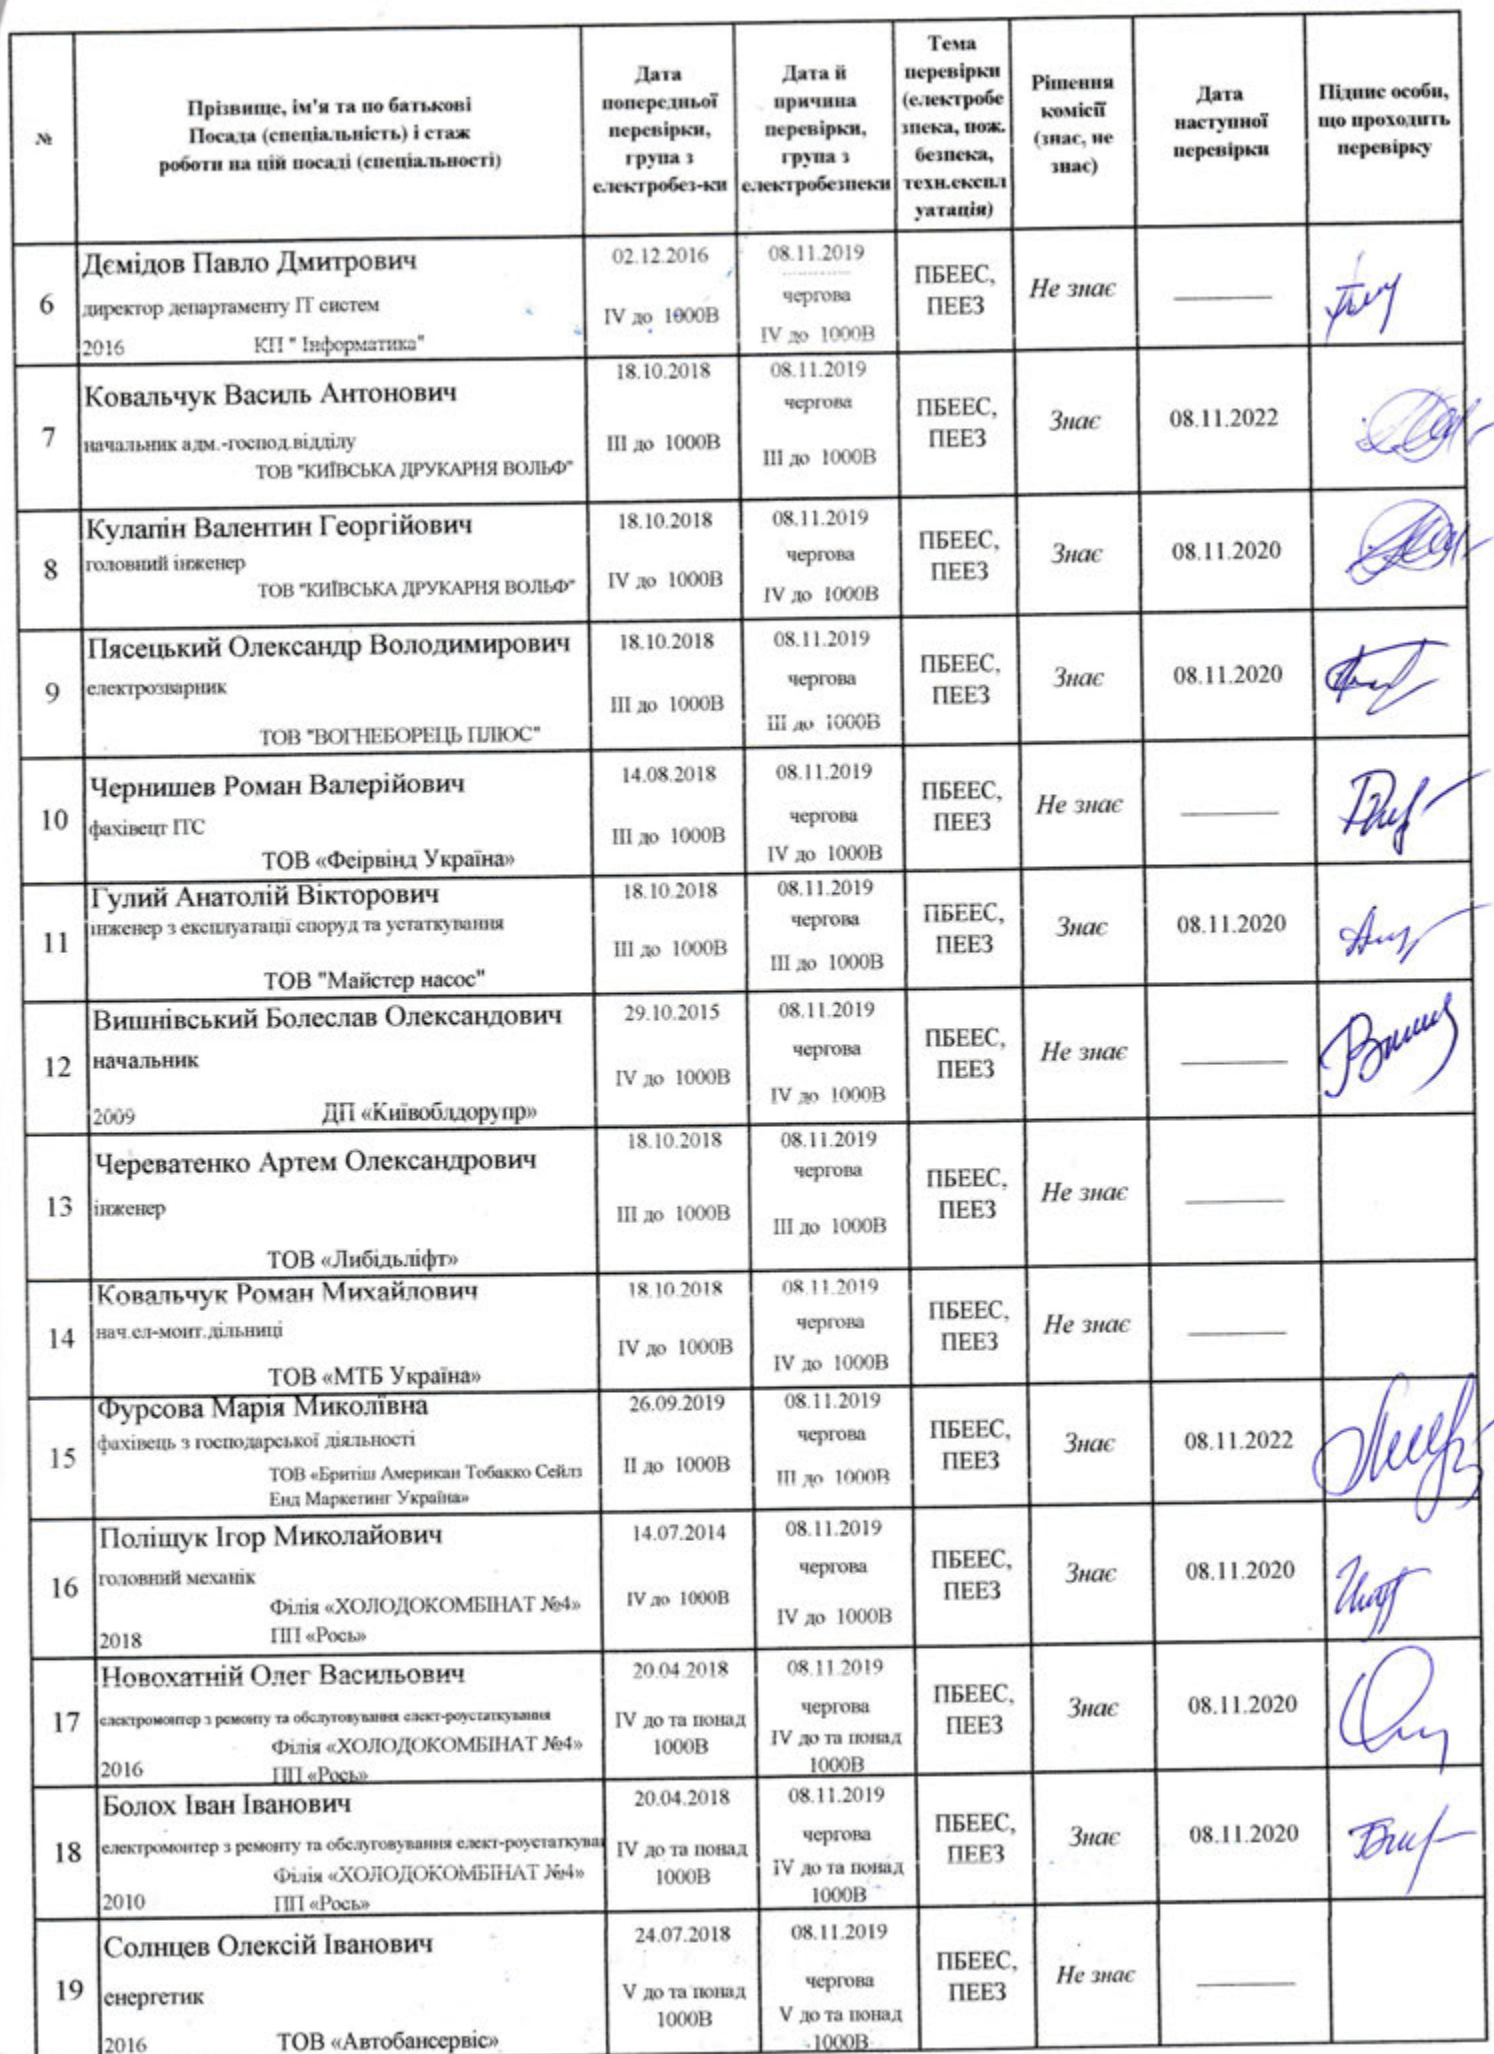 №
Прізвище, ім'я та по батькові
Посада (спеціальність) і стаж
роботи на цій посаді (спеціальності)
Дата
попередньої
перевірки,
група з
електробез-ки
Дата й
причина
перевірки,
група з
електробезпеки
Тема
перевірки
(електробе
зпека, пож.
безпека,
техн.експл
уатація)
Рішення
комісії
(знає, не
знає)
Дата
наступної
перевірки
Підпис особи,
що проходить
перевірку
6
Демідов Павло Дмитрович
директор департаменту ІТ систем
2016 КП " Інформатика"
02.12.2016
IV до 1000В
08.11.2019
чергова
IV до 1000В
ПБЕЕС,
ПЕЕЗ
Не знає
7
Ковальчук Василь Антонович
начальник адм.-господ.відділу
ТОВ "КИЇВСЬКА ДРУКАРНЯ ВОЛЬФ"
18.10.2018
III до 1000В
08.11.2019
чергова
III до 1000В
ПБЕЕС,
ПЕЕЗ
Знає
08.11.2022
8
Кулапін Валентин Георгійович
головний інженер
ТОВ "КИЇВСЬКА ДРУКАРНЯ ВОЛЬФ"
18.10.2018
IV до 1000В
08.11.2019
чергова
IV до 1000В
ПБЕЕС,
ПЕЕЗ
Знає
08.11.2020
9
Пясецький Олександр Володимирович
електрозварник
ТОВ "ВОГНЕБОРЕЦЬ ПЛЮС"
18.10.2018
III до 1000В
08.11.2019
чергова
III до 1000В
ПБЕЕС,
ПЕЕЗ
Знає
08.11.2020
10
Чернишев Роман Валерійович
фахівецт ІТС
ТОВ «Феірвінд Україна»
14.08.2018
III до 1000В
08.11.2019
чергова
IV до 1000В
ПБЕЕС,
ПЕЕЗ
Не знає
11
Гулий Анатолій Вікторович
інженер з експлуатації споруд та устаткування
ТОВ "Майстер насос"
18.10.2018
III до 1000В
08.11.2019
чергова
III до 1000В
ПБЕЕС,
ПЕЕЗ
Знає
08.11.2020
12
Вишнівський Болеслав Олександович
начальник
2009 ДП «Київоблдорупр»
29.10.2015
IV до 1000В
08.11.2019
чергова
IV до 1000В
ПБЕЕС,
ПЕЕЗ
Не знає
13
Череватенко Артем Олександрович
інженер
ТОВ «Либідьліфт»
18.10.2018
III до 1000В
08.11.2019
чергова
III до 1000В
ПБЕЕС,
ПЕЕЗ
Не знає
14
Ковальчук Роман Михайлович
нач.ел-монт.дільниці
ТОВ «МТБ Україна»
18.10.2018
IV до 1000В
08.11.2019
чергова
IV до 1000В
ПБЕЕС,
ПЕЕЗ
Не знає
15
Фурсова Марія Миколївна
фахівець з господарської діяльності
ТОВ «Бритіш Американ Тобакко Сейлз
Енд Маркетинг Україна»
26.09.2019
II до 1000В
08.11.2019
чергова
III до 1000В
ПБЕЕС,
ПЕЕЗ
Знає
08.11.2022
16
Поліщук Ігор Миколайович
головний механік
Філія «ХОЛОДОКОМБІНАТ №4»
2018 ПП «Рось»
14.07.2014
IV до 1000В
08.11.2019
чергова
IV до 1000В
ПБЕЕС,
ПЕЕЗ
Знає
08.11.2020
17
Новохатній Олег Васильович
електромонтер з ремонту та обслуговування елект-роустаткування
Філія «ХОЛОДОКОМБІНАТ №4»
2016 ПП «Рось»
20.04.2018
IV до та понад
1000В
08.11.2019
чергова
IV до та понад
1000В
ПБЕЕС,
ПЕЕЗ
Знає
08.11.2020
18
Болох Іван Іванович
електромонтер з ремонту та обслуговування елект-роустаткуван
Філія «ХОЛОДОКОМБІНАТ №4»
2010 ПП «Рось»
20.04.2018
IV до та понад
1000В
08.11.2019
чергова
IV до та понад
1000В
ПБЕЕС,
ПЕЕЗ
Знає
08.11.2020
19
Солнцев Олексій Іванович
енергетик
2016 ТОВ «Автобансервіс»
24.07.2018
V до та понад
1000В
08.11.2019
чергова
V до та понад
1000В
ПБЕЕС,
ПЕЕЗ
Не знає